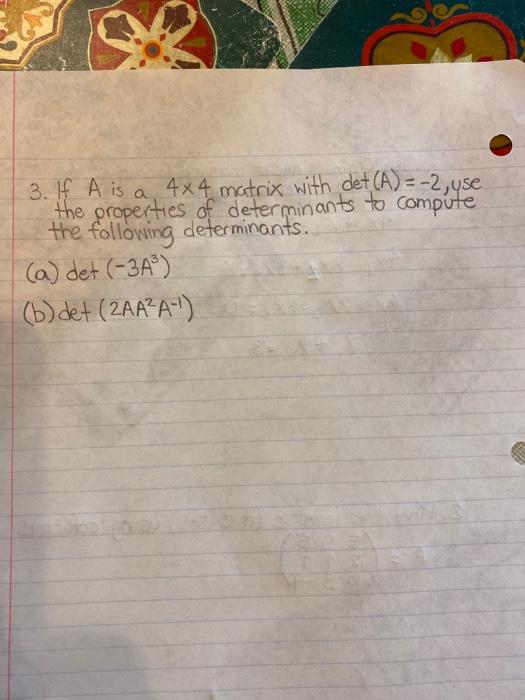 3. If A is a 4×4 matrix with det(A) = -2, use
the properties of determinants to compute
the following determinants.
(a) det (-3A³)
(b) det (2AA²A⁻¹)